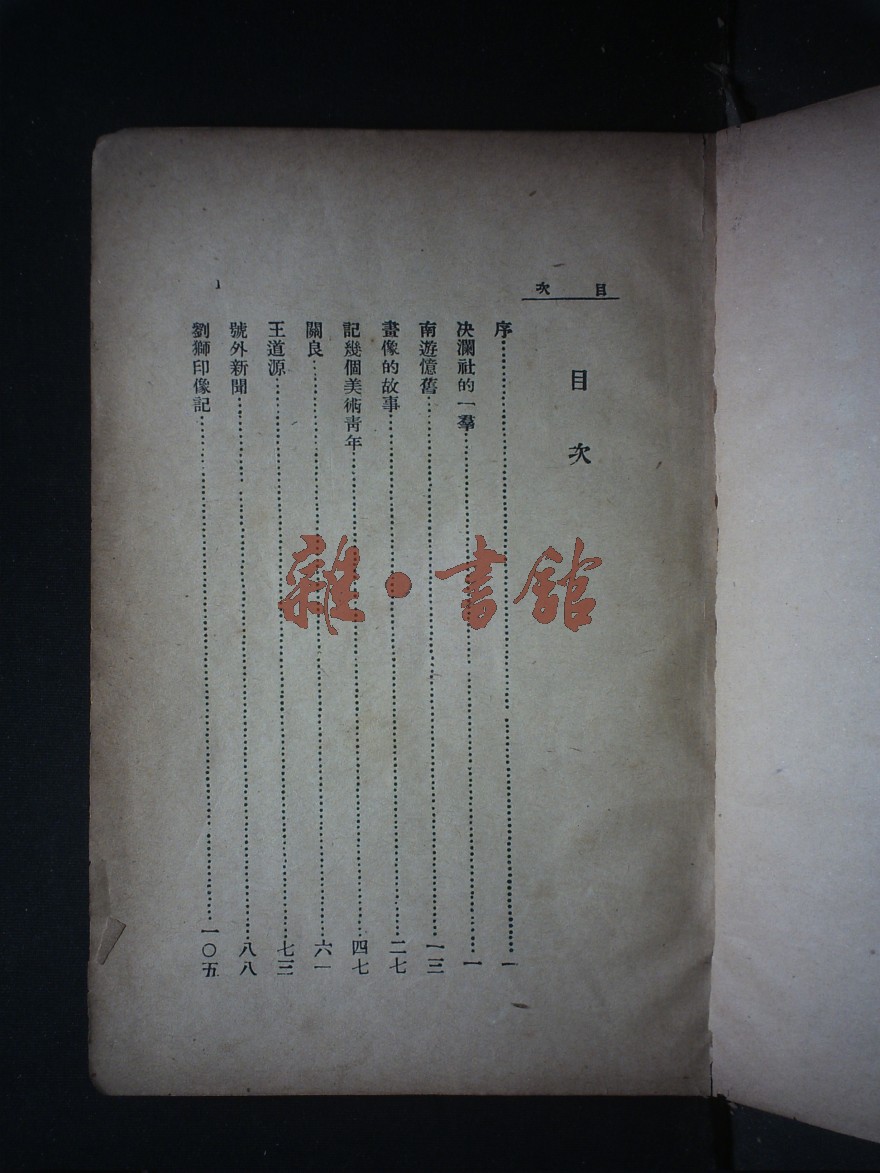 目次
1
目次
序……一
決瀾社的一羣……一
南遊憶舊……一三
畫像的故事……二七
記幾個美術靑年……四七
關良……六一
王道源……七三
號外新聞……八八
劉獅印像記……一〇五
雜・書館